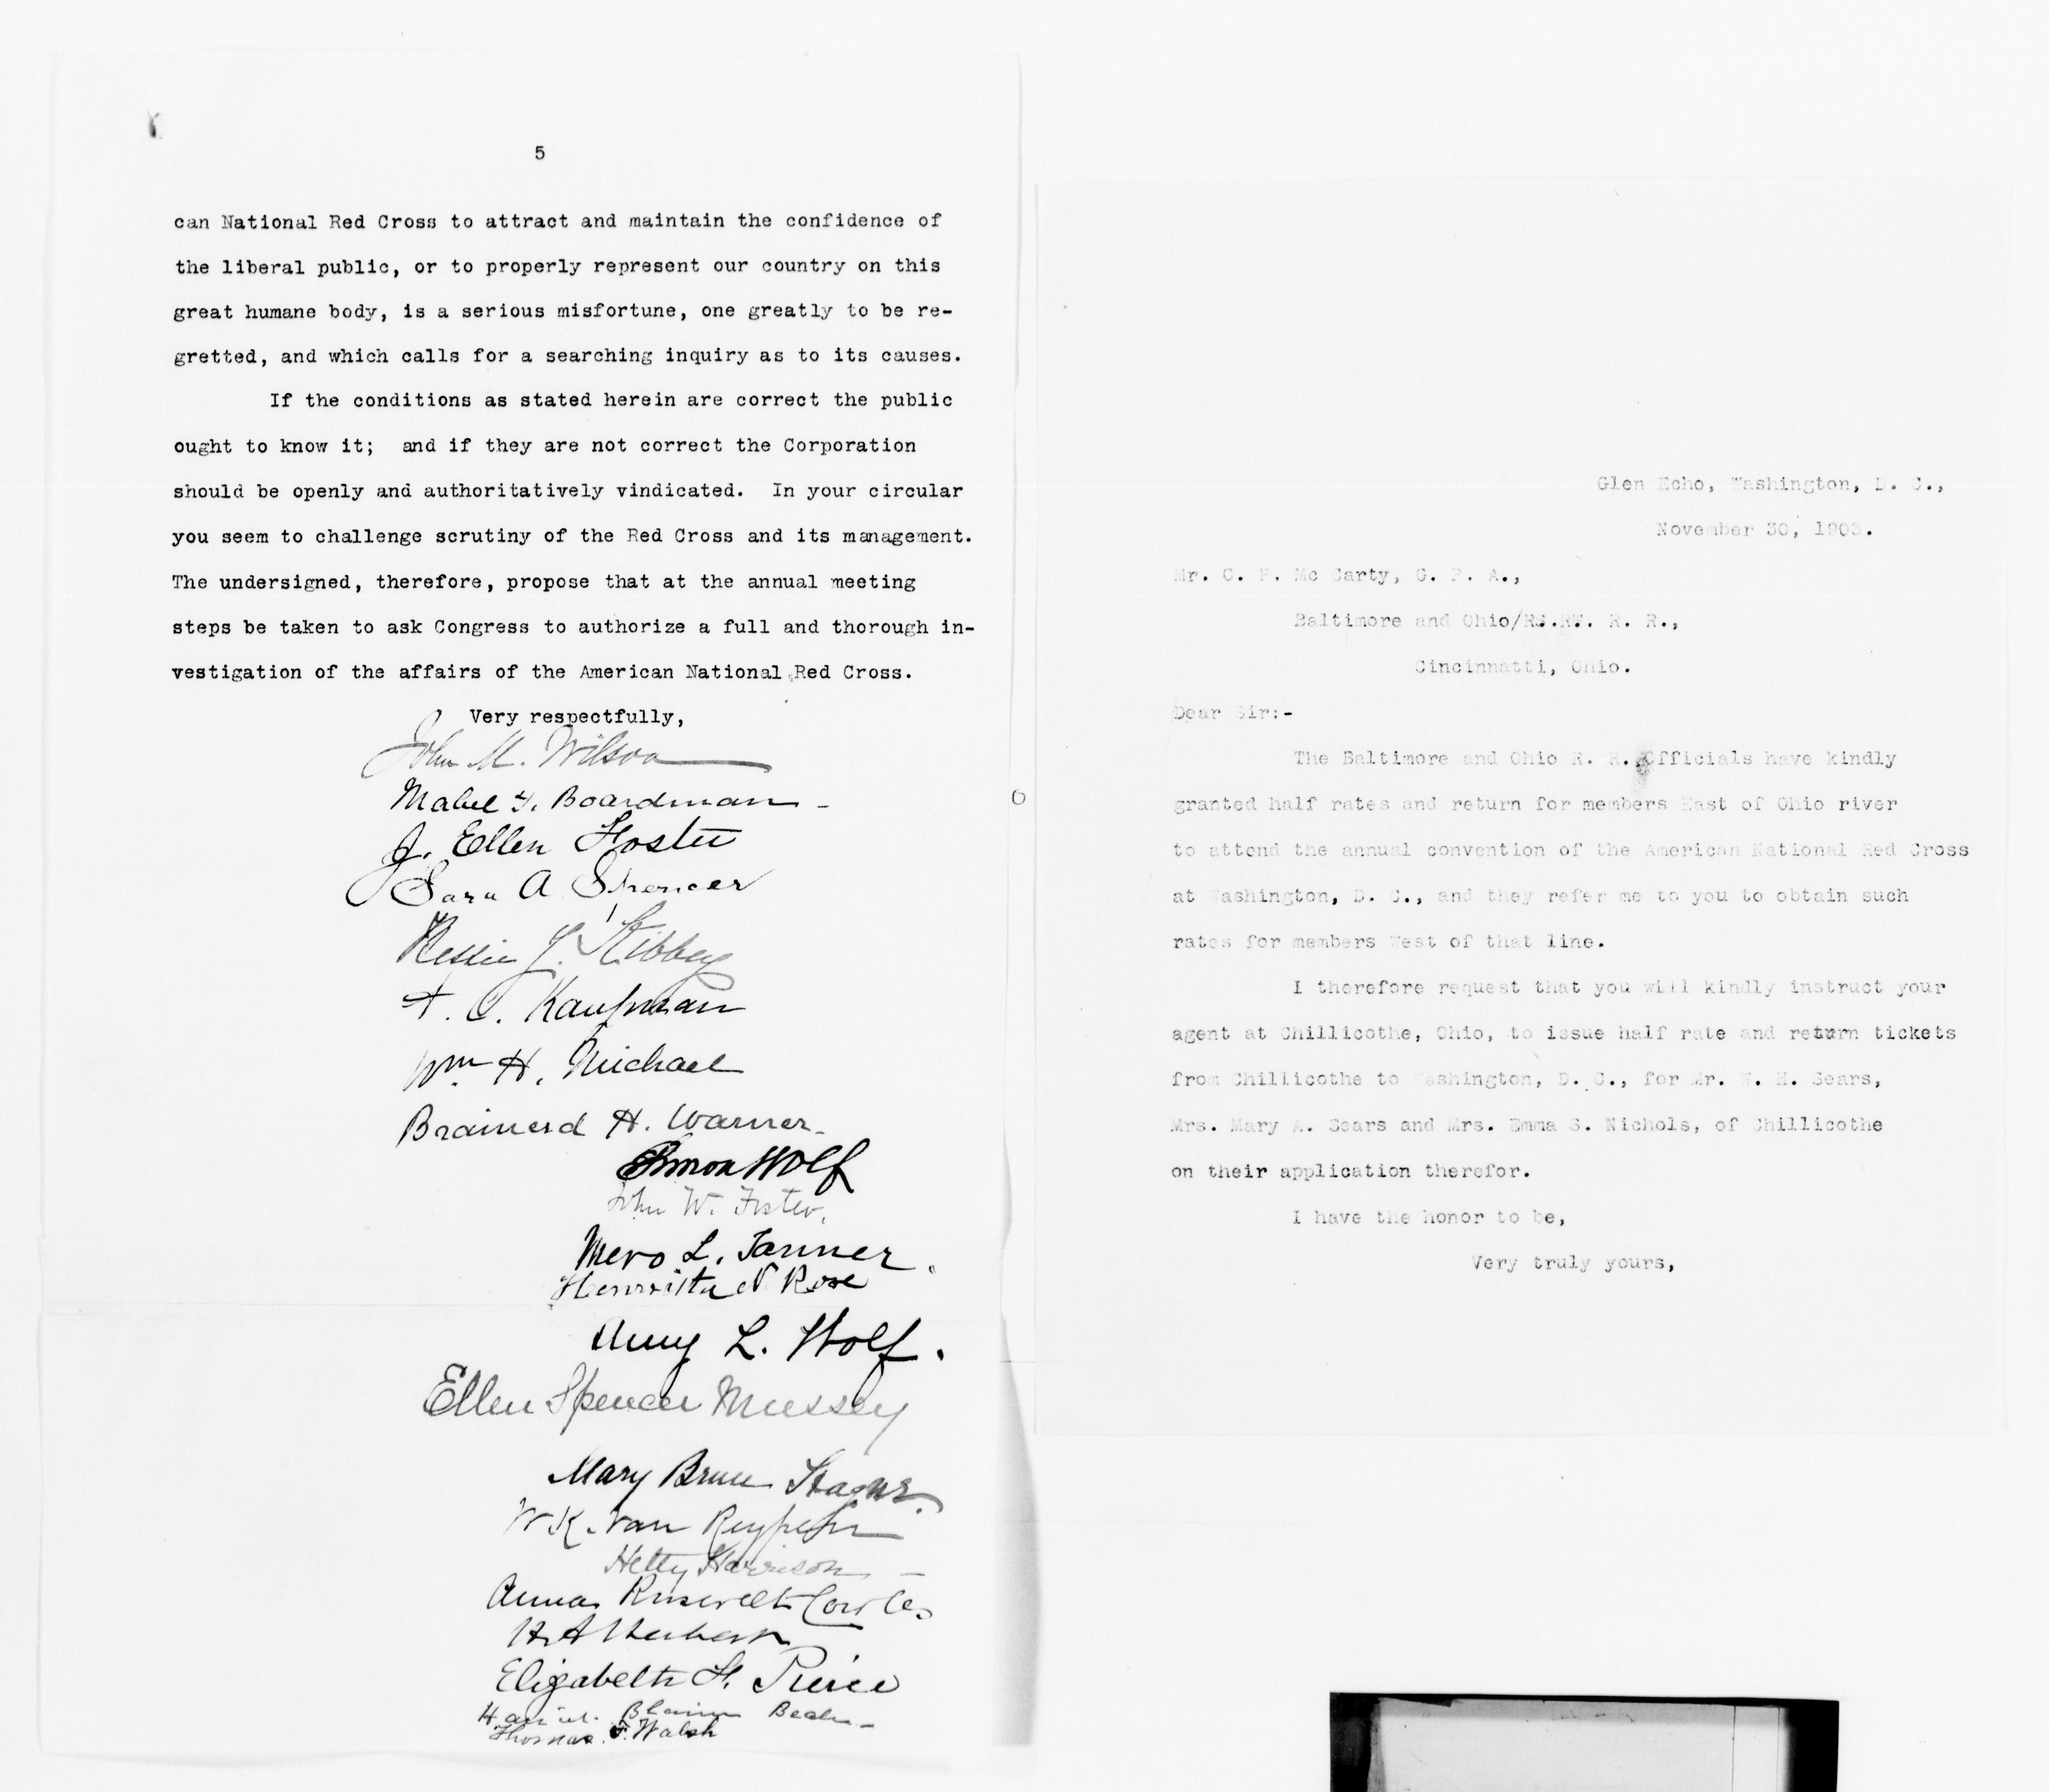 5
can National Red Cross to attract and maintain the confidence of
the liberal public, or to properly represent our country on this
great humane body, is a serious misfortune, one greatly to be re-
gretted, and which calls for a searching inquiry as to its causes.
If the conditions as stated herein are correct the public
ought to know it; and if they are not correct the Corporation
should be openly and authoritatively vindicated. In your circular
you seem to challenge scrutiny of the Red Cross and its management.
The undersigned, therefore, propose that at the annual meeting
steps be taken to ask Congress to authorize a full and thorough in-
vestigation of the affairs of the American National Red Cross.
Very respectfully,
John M. Wilson
Mabel T. Boardman
J. Ellen Foster
Sara A. Spencer
J. Kibbey
A. C. Kaufman
Wm. H. Michael
Brainerd H. Warner
Simon Wolf
John W. Foster,
Mero L. Tanner.
Henrietta N Rose
Amy L. Wolf.
Ellen Spencer Mussey
Mary Bruce
W K. Van Reypen
Hetty Harrison
Anna Roosevelt Cowles
H A Herbert
Elizabeth H. Pierce
Harriet Blaine Beale
Thomas F. Walsh
Glen Echo, Washington, D. C.,
November 30, 1903.
Mr. O. P. Mc Carty, G. P. A.,
Baltimore and Ohio R. R.,
Cincinnatti, Ohio.
Dear Sir:-
The Baltimore and Ohio R. R. Officials have kindly
granted half rates and return for members East of Ohio river
to attend the annual convention of the American National Red Cross
at Washington, D. C., and they refer me to you to obtain such
rates for members West of that line.
I therefore request that you will kindly instruct your
agent at Chillicothe, Ohio, to issue half rate and return tickets
from Chillicothe to Washington, D. C., for Mr. W. H. Sears,
Mrs. Mary A. Sears and Mrs. Emma S. Nichols, of Chillicothe
on their application therefor.
I have the honor to be,
Very truly yours,